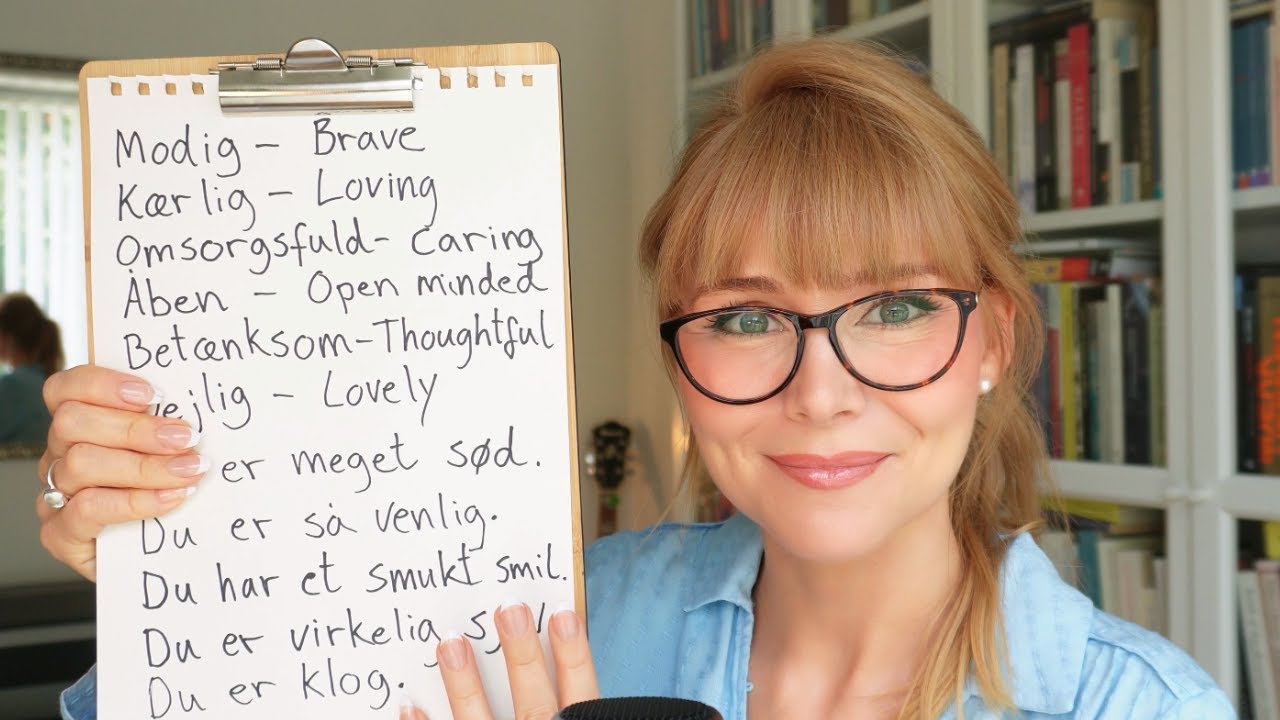 Modig - Brave
Kærlig - Loving
Omsorgsfuld - Caring
Åben - Open minded
Betænksom - Thoughtful
- Lovely
er meget sød.
Du er så venlig.
Du har et smukt smil.
Du er virkelig
Du er klog.